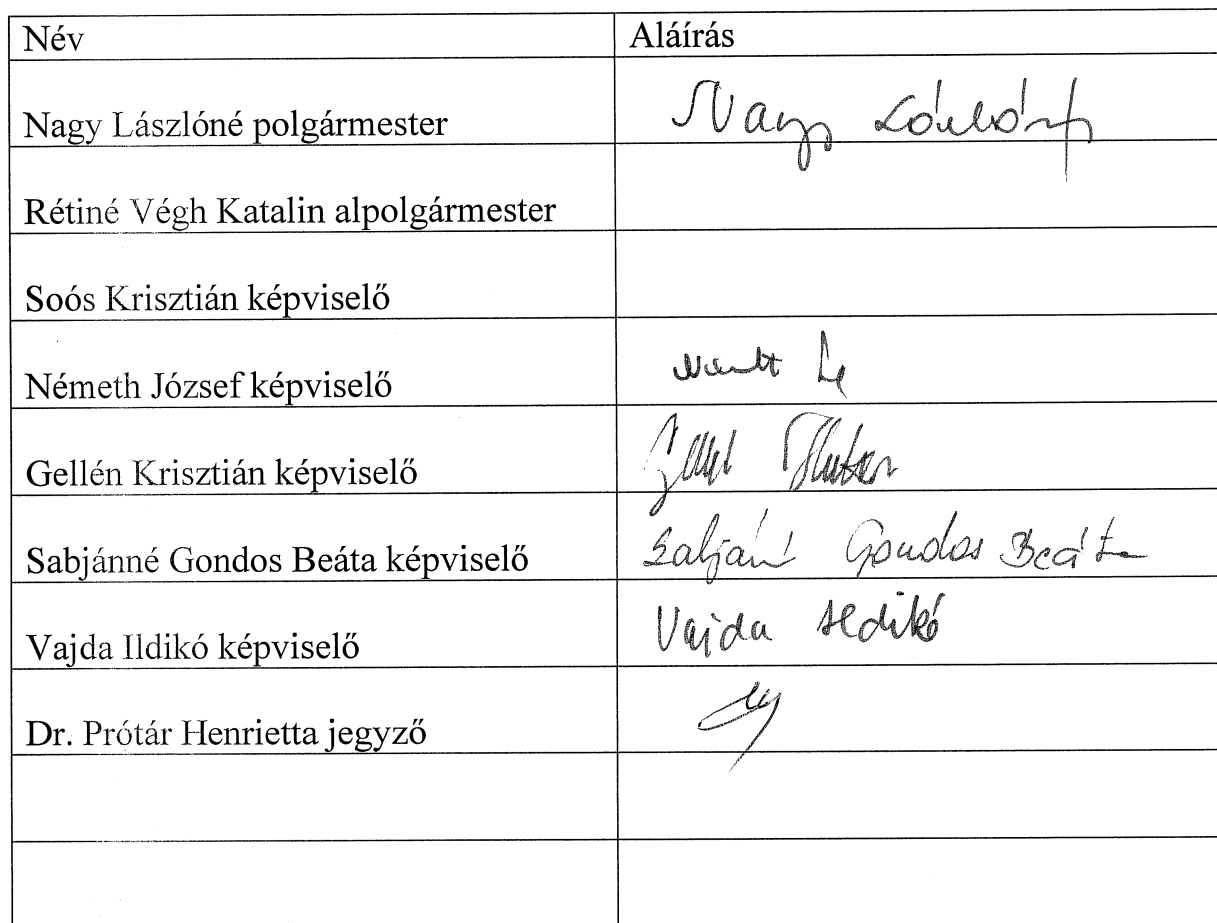 Név Aláírás
Nagy Lászlóné polgármester Nagy Lászlóné
Rétiné Végh Katalin alpolgármester
Soós Krisztián képviselő
Németh József képviselő
Gellén Krisztián képviselő
Sabjánné Gondos Beáta képviselő Sabjánné Gondos Beáta
Vajda Ildikó képviselő Vajda Ildikó
Dr. Prótár Henrietta jegyző